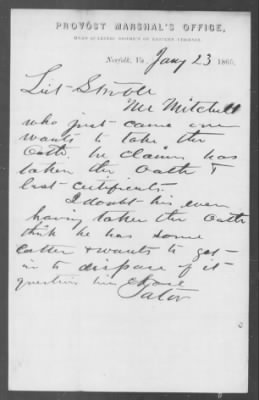 PROVOST MARSHAL'S OFFICE,
Norfolk, Va. Jany 23 1865.
Lieut
Mr Mitchell
who just came over
wants to take the
Oath. he claims has
taken the Oath &
lost certificate.
I doubt his ever
having taken the Oath
think he has some
cattle & wants to get
in to dispose of it
question him close